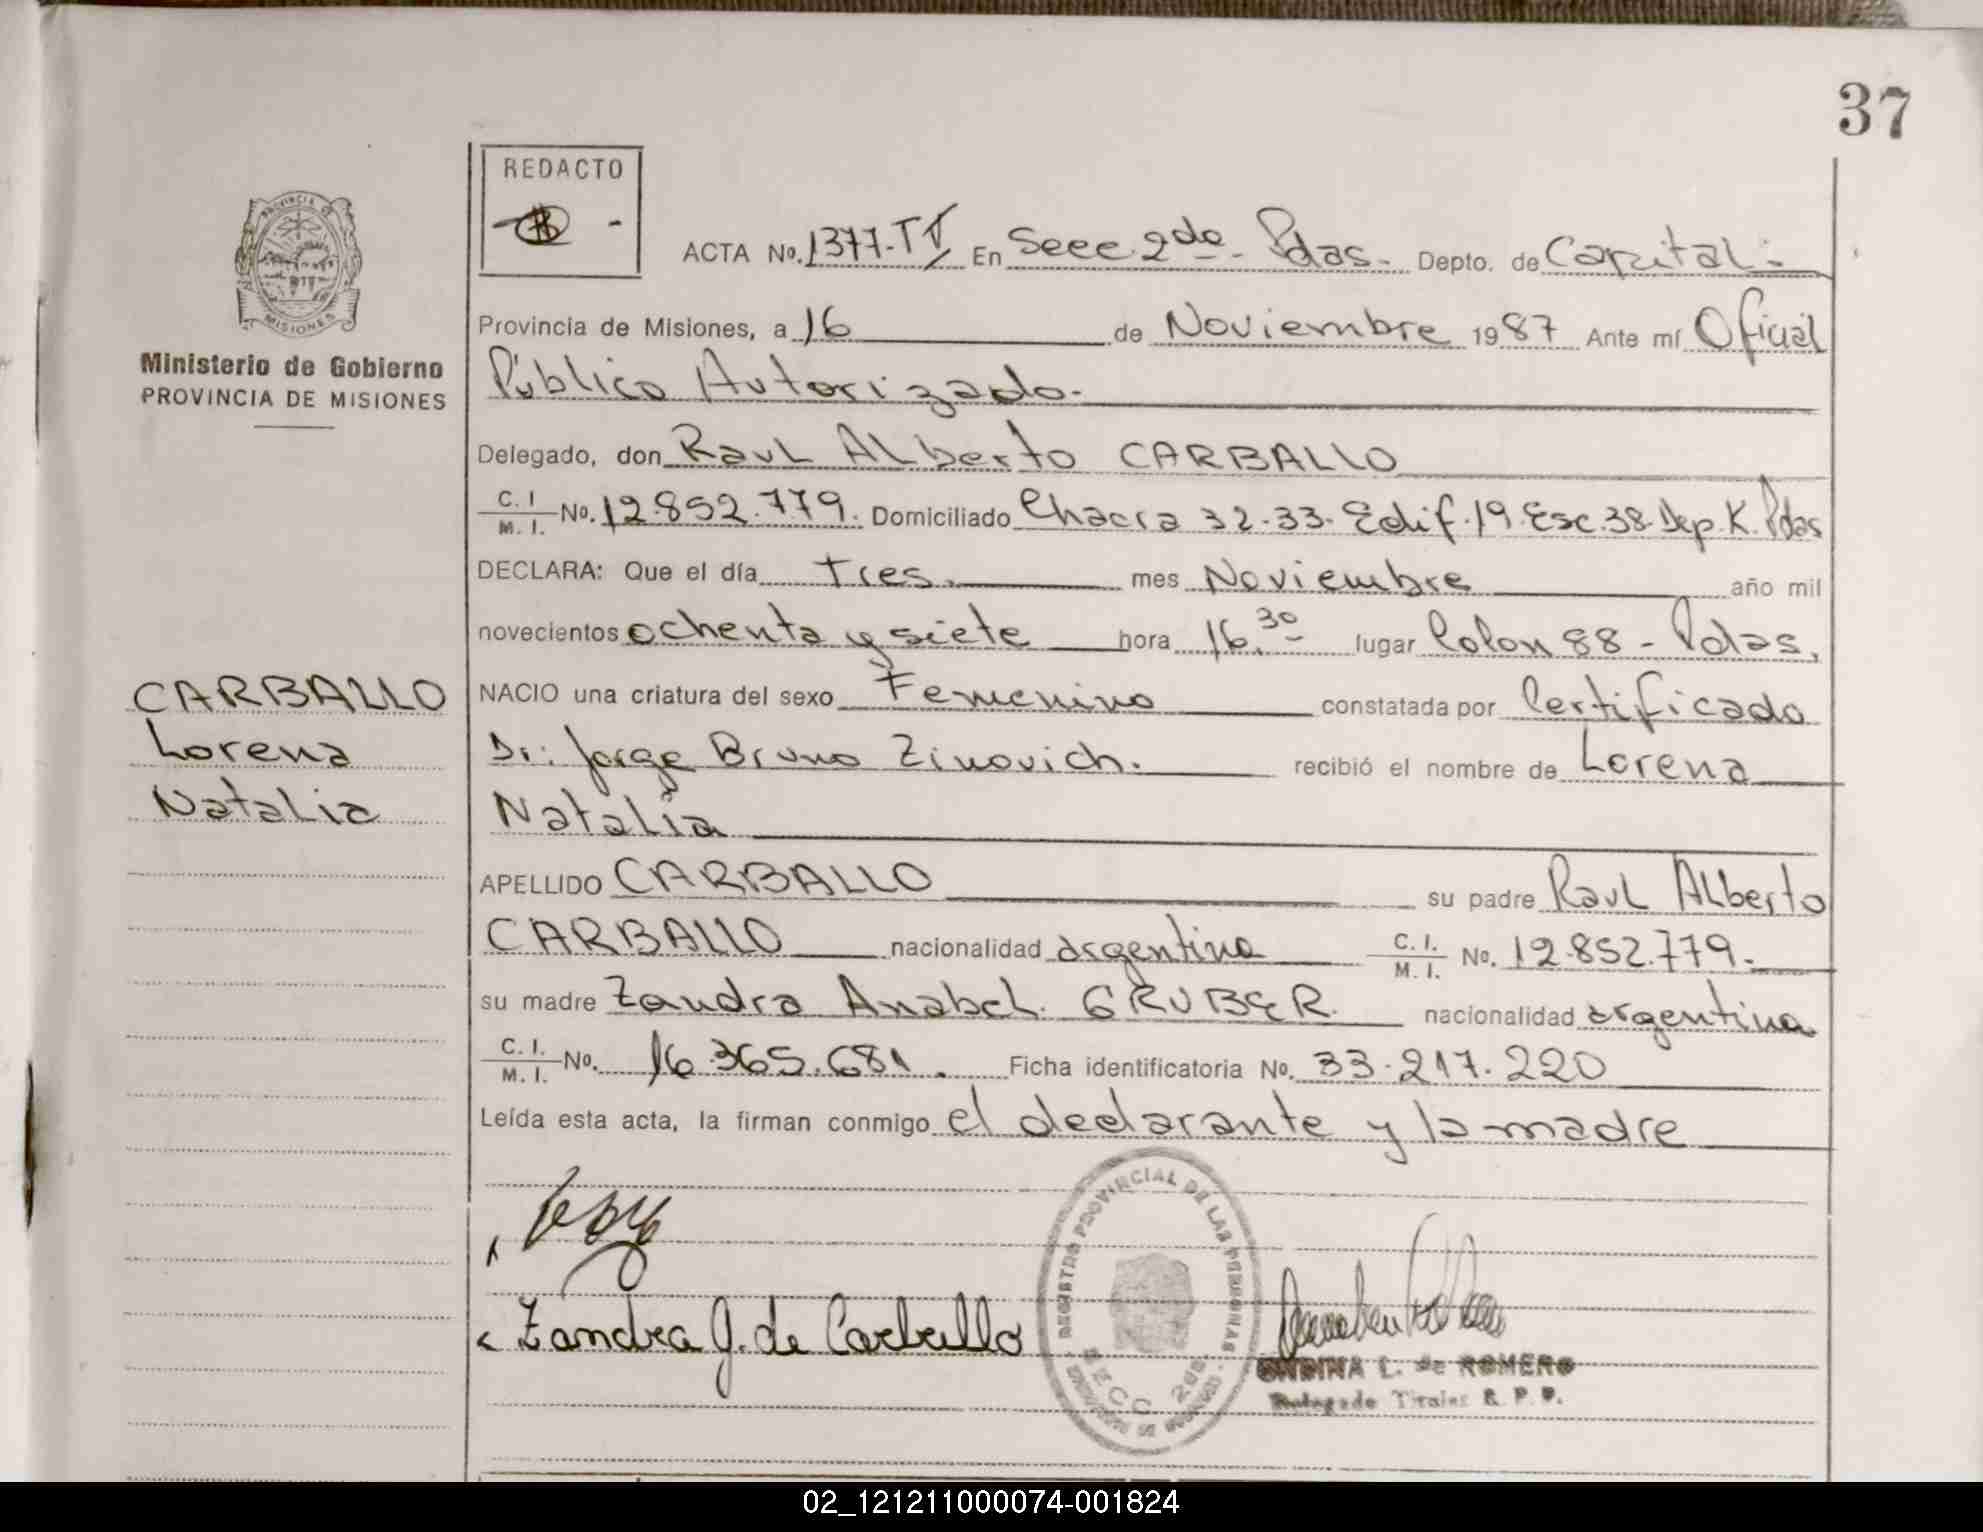 37
REDACTO
PROVINCIA DE
MISIONES
Ministerio de Gobierno
PROVINCIA DE MISIONES
ACTA No. 1377-TV En Secc 2da - Pdas - Depto. de Capital -
Provincia de Misiones, a 16 de Noviembre 1987 Ante mí Oficial
Público Autorizado -
Delegado, don Raul Alberto CARBALLO
C. I / M. I. No. 12.852.779. Domiciliado Chacra 32-33. Edif. 19. Esc. 38. Dep. K. Pdas
DECLARA: Que el día Tres. mes Noviembre año mil
novecientos ochenta y siete hora 16.30 lugar Colon 88 - Pdas.
NACIO una criatura del sexo Femenino constatada por Certificado
Dr: Jorge Bruno Zinovich. recibió el nombre de Lorena
Natalia
APELLIDO CARBALLO su padre Raul Alberto
CARBALLO nacionalidad argentina C. I. / M. I. No. 12.852.779.
su madre Zandra Anabel. GRUBER nacionalidad argentina
C. I. / M. I. No. 16.365.681. Ficha identificatoria No. 33.217.220
Leída esta acta, la firman conmigo el declarante y la madre
CARBALLO
Lorena
Natalia
Zandra G. de Carballo
REGISTRO PROVINCIAL DE LAS PERSONAS
SECC 2da
ONDINA L. de ROMERO
Delegado Titular R. P. P.
02_121211000074-001824